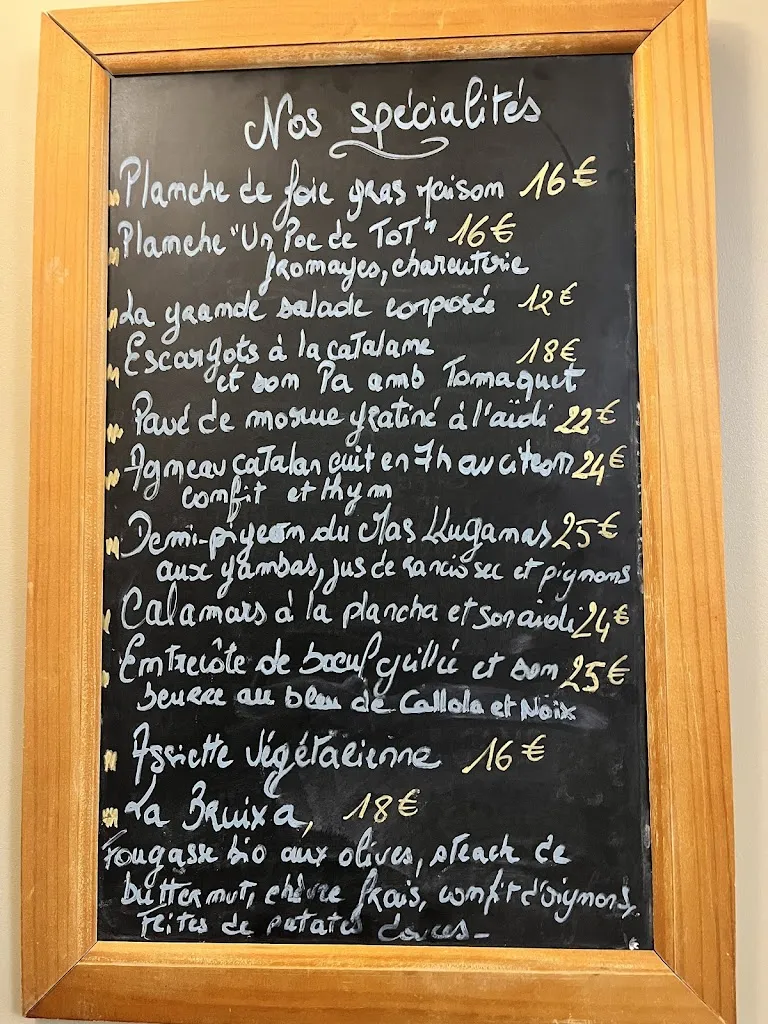 Nos spécialités
Planche de foie gras maison 16€
Planche "Un Poc de ToT" 16€
fromages, charcuterie
La grande salade composée 12€
Escargots à la catalane 18€
et son Pa amb Tomaquet
Pavé de morue gratiné à l'aïoli 22€
Agneau catalan cuit en 7h au citron 24€
confit et thym
Demi-pigeon du Mas Llugamas 25€
aux gambas, jus de rancio sec et pignons
Calamars à la plancha et son aïoli 24€
Entrecôte de bœuf grillée et son 25€
beurre au bleu de Callola et Noix
Assiette végétarienne 16€
La Bruixa, 18€
Fougasse bio aux olives, steack de
butternut, chèvre frais, confit d'oignons,
frites de patates douces-